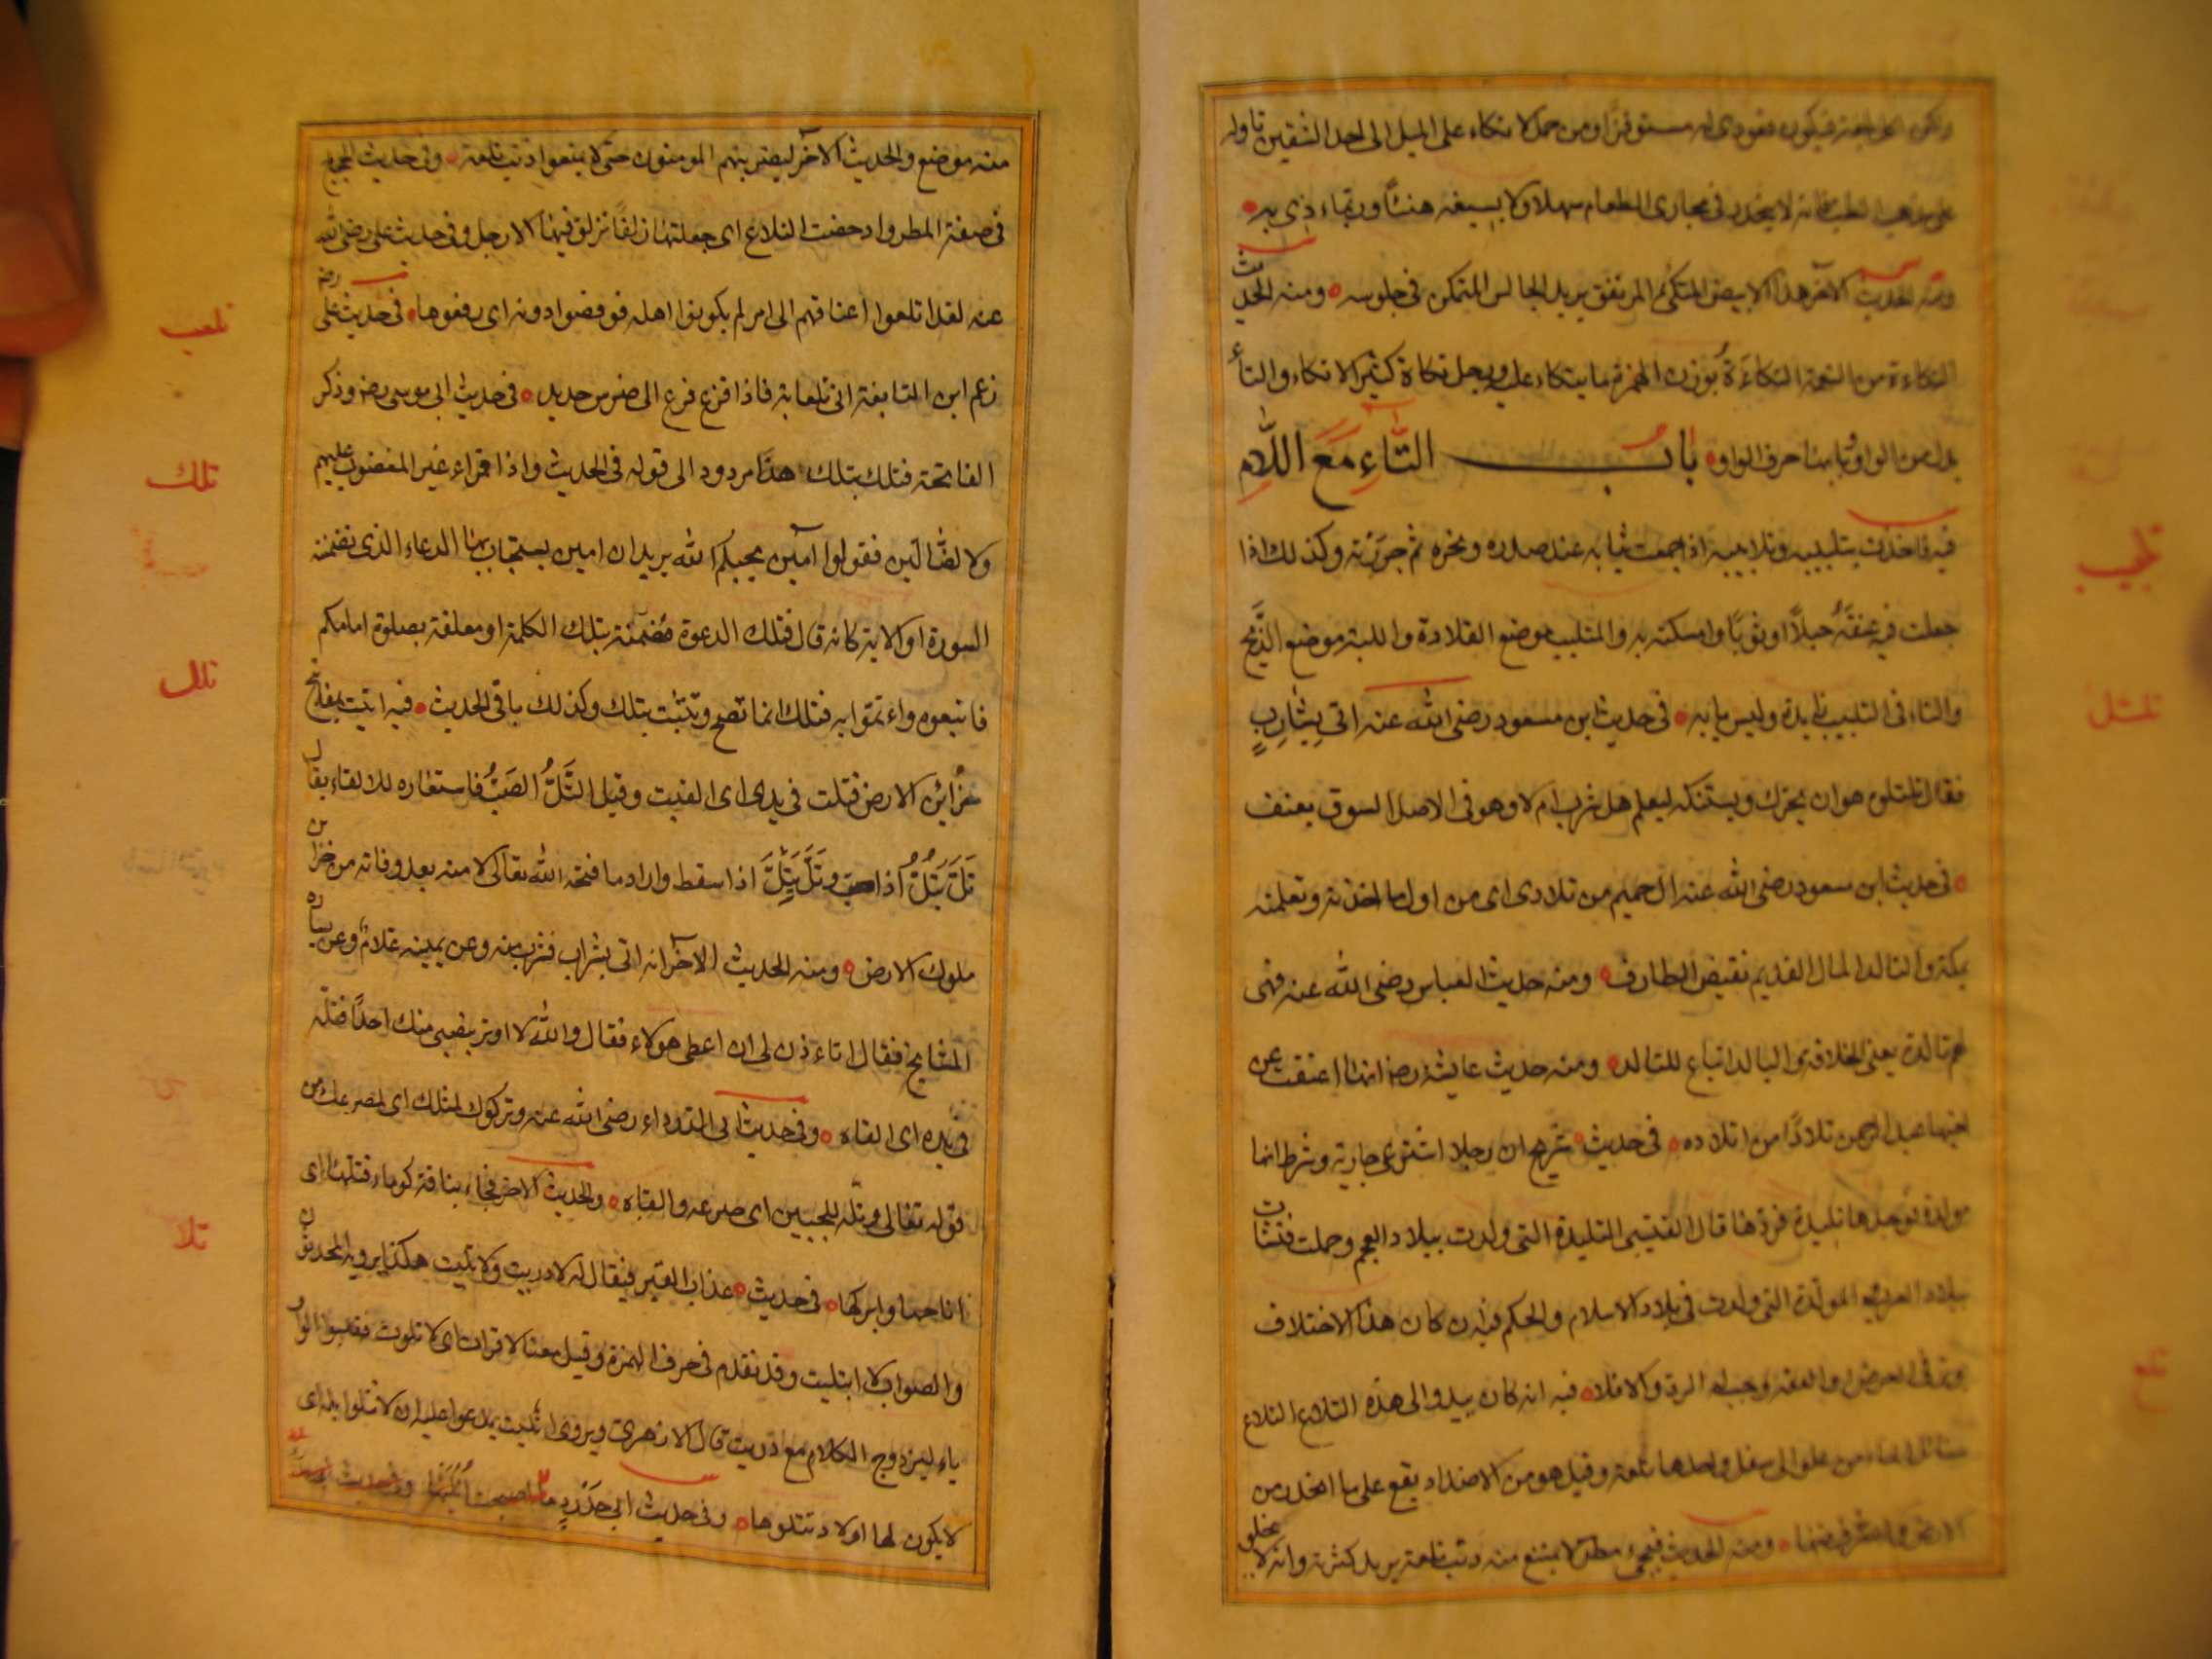 فيكون قعودى له مستوفزا ومن حمل الاتكاء على الميل الى احد الشقين تاوله
على مذهب الطب فانه لا ينحدر فى مجارى الطعام سهلا ولا يسيغه هنيئا وربما تاذى به
ومنه الحديث الآخر هذا الابيض المتكئ المرتفق يريد الجالس المتمكن فى جلوسه ومنه الحديث
التكاءة من النعمة التكاءة بوزن الهمزة ما يتكاء عليه ورجل تكاة كثير الاتكاء والتاء
بدل من الواو وبابها حرف الواو باب التاء مع اللام
فيه فاخذت بتلبيبه وتلابيبه اذا جمعت ثيابه عند صدره ونحره ثم جررته وكذلك اذا
تلبيب
جعلت فى عنقه حبلا او ثوبا وامسكته به والمتلبب موضع القلادة واللبة موضع الذبح
والتاء فى التلبيب زايدة وليس بابه فى حديث ابن مسعود رضى الله عنه اتى بشارب
تلتل
فقال تلتلوه هو ان يحرك ويستنكه ليعلم هل شرب ام لا وهو فى الاصل السوق بعنف
فى حديث ابن مسعود رضى الله عنه ال حميم من تلادى اى من اول ما اخذته وتعلمته
بمكة والتالد المال القديم نقيض الطارف ومنه حديث العباس رضى الله عنه فهى
لهم تالدة بالدة يعنى الخلافة والبالد اتباع للتالد ومنه حديث عايشة رضـ انها اعتقت عن
اخيها عبد الرحمن تلادا من اتلاده فى حديث شريح ان رجلا اشترى جارية وشرط انها
مولدة فوجدها تليدة فردها قال القتيبى التليدة التى ولدت ببلاد العجم وحملت فنشات
ببلاد العرب والمولدة التى ولدت فى بلاد الاسلام والحكم فيه ان كان هذا الاختلاف
يؤثر فى الغرض او القيمة وجب له الرد والا فلا فيه انه كان يبدو الى هذه التلاع التلاع
مسائل الماء من علو الى سفل واحدها تلعة وقيل هو من الاضداد يقع على ما انحدر من
الارض وما اشرف منها ومنه الحديث فيجىء مطر لا يمتنع منه ذنب تلعة يريد كثرته وانه لا يخلو
منه موضع والحديث الآخر ليضربنهم المومنون حتى لا يمنعوا ذنب تلعة وفى حديث الحجاج
فى صفة المطر وادحضت التلاع اى جعلتها زلقا تزلق فيها الارجل وفى حديث على رضى الله
عنه لقد اتلعوا اعناقهم الى امر لم يكونوا اهله فوقصوا دونه اى رفعوها فى حديث على رضـ
تلعب
زعم ابن النابغة انى تلعابة فاذا فزع فزع الى ضرس حديد فى حديث ابى موسى رضـ وذكر
الفاتحة فتلك بتلك هذا مردود الى قوله فى الحديث واذا قراء غير المغضوب عليهم
تلك
ولا الضالين فقولوا آمين يحببكم الله يريد ان امين يستجاب بها الدعاء الذى تضمنته
السورة او الاية كانه قال فتلك الدعوة مضمنة بتلك الكلمة او معلقة بصلوة امامكم
فاتبعوه وائتموا به فتلك انما تصح وتثبت بتلك وكذلك باقى الحديث فيه اتيت بمفاتح
تلل
خزائن الارض فتلت فى يدى اى القيت وقيل التل الصب فاستعاره للالقاء يقال
تل يتل اذا صب وتل يتل اذا سقط واراد ما فتحه الله تعالى لامته بعد وفاته من خزائن
ملوك الارض ومنه الحديث الآخر انه اتى بشراب فشرب منه وعن يمينه غلام وعن يساره
المشايخ فقال اتاءذن لى ان اعطى هولاء فقال والله لا اوثر بنصيبى منك احدا فتله
فى يده اى القاه وفى حديث ابى الدرداء رضى الله عنه وتركوك لمتلك اى لمصرعك من
قوله تعالى وتله للجبين اى صرعه والقاه والحديث الاخر فجاء بناقة كوماء فتلها اى
اناخها وابركها فى حديث عذاب القبر فيقال له لا دريت ولا تليت هكذا يرويه المحدثون
تلا
والصواب ولا ايتليت وقد تقدم فى حرف الهمزة وقيل معناه لا قرات اى لا تلوت فقلبوا الواو
ياء ليزدوج الكلام مع دريت قال الازهرى ويروى اتليت يدعوا عليه ان لا تتلوا ابله اى
لا يكون لها اولاد تتلوها وفى حديث ابى حدرد ما اصبحت اتليها